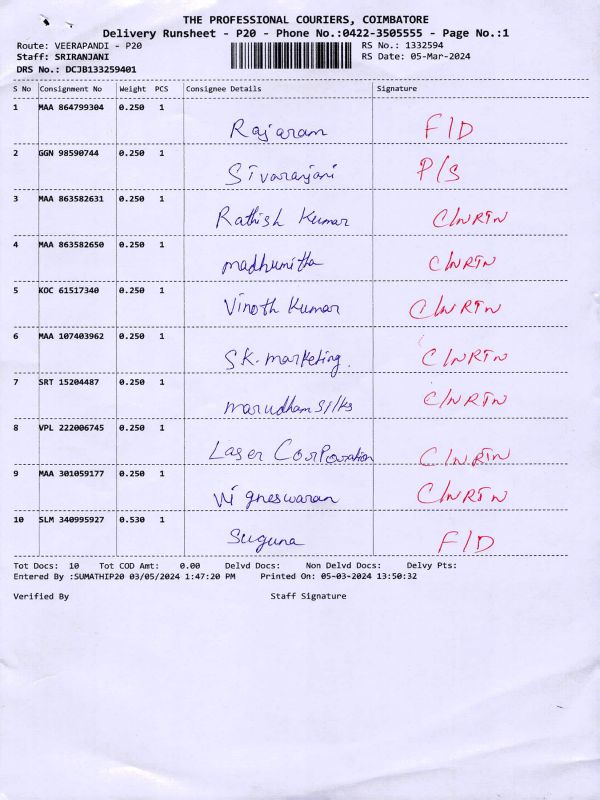 THE PROFESSIONAL COURIERS, COIMBATORE
Delivery Runsheet - P20 - Phone No.:0422-3505555 - Page No.:1
Route: VEERAPANDI - P20 RS No.: 1332594
Staff: SRIRANJANI RS Date: 05-Mar-2024
DRS No.: DCJB133259401
S No Consignment No Weight PCS Consignee Details Signature
1 MAA 864799304 0.250 1 Rajaram F/D
2 GGN 98590744 0.250 1 Sivaranjani P/S
3 MAA 863582631 0.250 1 Rathish Kumar C/NRTN
4 MAA 863582650 0.250 1 madhumitha C/NRTN
5 KOC 61517340 0.250 1 Vinoth Kumar C/NRTN
6 MAA 107403962 0.250 1 SK. marketing. C/NRTN
7 SRT 15204487 0.250 1 marudham silks C/NRTN
8 VPL 222006745 0.250 1 Laser Corporation C/NRTN
9 MAA 301059177 0.250 1 Vigneswaran C/NRTN
10 SLM 340995927 0.530 1 Suguna F/D
Tot Docs: 10 Tot COD Amt: 0.00 Delvd Docs: Non Delvd Docs: Delvy Pts:
Entered By :SUMATHIP20 03/05/2024 1:47:20 PM Printed On: 05-03-2024 13:50:32
Verified By Staff Signature